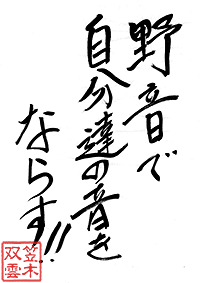 野音で
自分達の音を
ならす!!
笠木
双雲